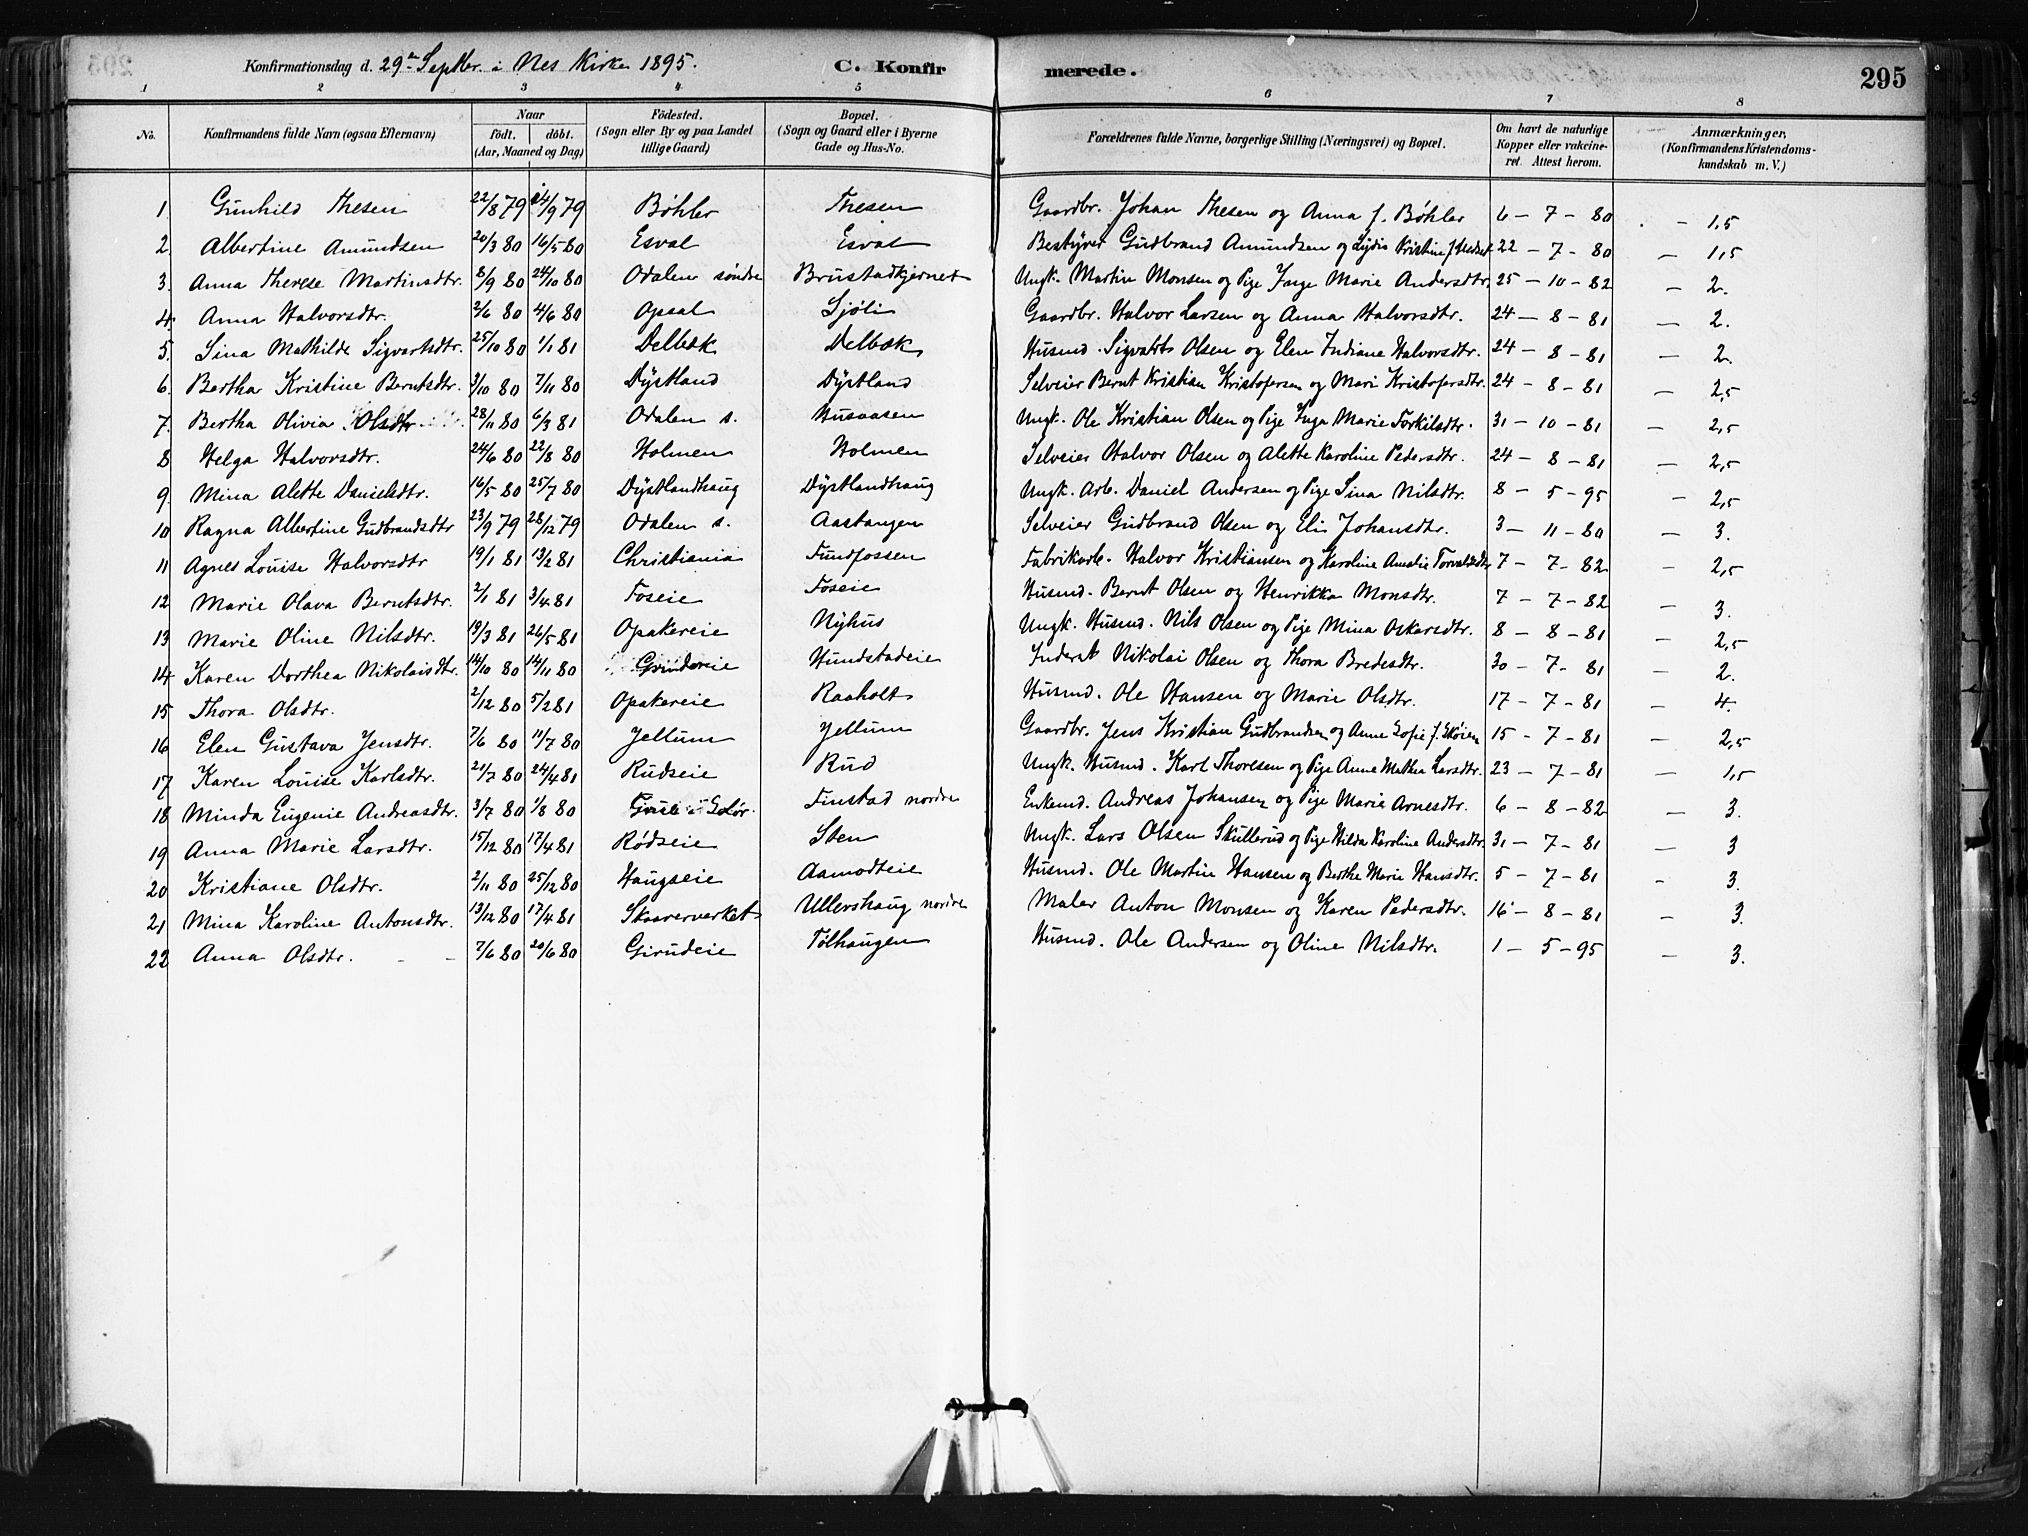 Konfirmationsdag d. 29de Septbr. i Nes Kirke 1895. C. Konfirmerede. 295
1 2 3 4 5 6 7 8
No. Konfirmandens fulde Navn (ogsaa Efternavn) Naar født. døbt. (Aar, Maaned og Dag) Födested. (Sogn eller By og paa Landet tillige Gaard) Bopæl. (Sogn og Gaard eller i Byerne Gade og Hus-No. Forældrenes fulde Navne, borgerlige Stilling (Næringsvei) og Bopæl. Om havt de naturlige Kopper eller vakcineret. Attest herom. Anmærkninger, (Konfirmandens Kristendomskundskab m. V.)
1. Gunhild Thesen 22/8 79 14/9 79 Bøhler Thesen Gaardbr. Johan Thesen og Anna f. Bøhler 6 - 7 - 80 - 1,5
2. Albertine Amundsen 20/3 80 16/5 80 Esval Esval Bestyrer Gudbrand Amundsen og Lydia Kristine f. 22 - 7 - 80 - 1,5
3. Anna Therese Martinsdtr. 8/9 80 24/10 80 Odalen søndre Brustadtjernet Ungk. Martin Monsen og Pige Inge Marie Andersdtr. 25 - 10 - 82 - 2.
4. Anna Halvorsdtr. 2/6 80 4/6 80 Opsal Sjøli Gaardbr. Halvor Larsen og Anna Halvorsdtr. 24 - 8 - 81 - 2.
5. Sina Mathilde Sigvartsdtr. 25/10 80 1/1 81 Delbæk Delbæk Husmd. Sigvart Olsen og Elen Indiane Halvorsdtr. 24 - 8 - 81 - 2.
6. Bertha Kristine Berntsdtr. 3/10 80 7/11 80 Dystland Dystland Selveier Bernt Kristian Kristofersen og Mari Kristofersdtr. 24 - 8 - 81 - 2,5
7. Bertha Olivia Olsdtr. 28/11 80 6/3 81 Odalen s. Husaasen Ungk. Ole Kristian Olsen og Pige Inga Marie Torkilsdtr. 31 - 10 - 81 - 2,5
8 Helga Halvorsdtr. 24/6 80 22/8 80 Holmen Holmen Selveier Halvor Olsen og Alette Karoline Pedersdtr. 24 - 8 - 81 - 2,5
9 Mina Alette Danielsdtr. 16/5 80 25/7 80 Dystlandhaug Dystlandhaug Ungk. Arb. Daniel Andersen og Pige Sina Nilsdtr. 8 - 5 - 95 - 2,5
10 Ragna Albertine Gudbrandsdtr 23/9 79 28/12 79 Odalen s. Aastangen Selveier Gudbrand Olsen og Elis Johansdtr. 3 - 11 - 80 - 3.
11 Agnes Louise Halvorsdtr 19/1 81 13/2 81 Christiania Fundfossen Fabrikarb. Halvor Kristiansen og Karoline Amalie Torvaldsdtr 7 - 7 - 82 - 2,5
12 Marie Olava Berntsdtr. 2/1 81 3/4 81 Foseie Foseie Husmd. Bernt Olsen og Henrikka Monsdtr. 7 - 7 - 82 - 3.
13 Marie Oline Nilsdtr. 19/3 81 26/5 81 Opakereie Nyhus Ungk. Husmd. Nils Olsen og Pige Mina Oskarsdtr. 8 - 8 - 81 - 2,5
14 Karen Dorthea Nikolaisdtr. 14/10 80 14/11 80 Hundstadeie Inderst Nikolai Olsen og Thora Bredesdtr. 30 - 7 - 81 - 2.
15 Thora Olsdtr. 2/12 80 5/2 81 Opakereie Raaholt Husmd. Ole Hansen og Marie Olsdtr. 17 - 7 - 81 - 4.
16 Elen Gustava Jensdtr. 7/6 80 11/7 80 Jellum Jellum Gaardbr. Jens Kristian Gudbrandsen og Anne Sofie f. Skøien 15 - 7 - 81 - 2,5
17 Karen Louise Karlsdtr. 21/7 80 24/4 81 Rudseie Rud Ungk. Husmd. Karl Thoresen og Pige Anna Mathea Larsdtr. 23 - 7 - 81 - 1,5
18 Minda Eugenie Andreasdtr. 3/7 80 1/8 80 Grue i Solør. Finstad nordre Enkemd. Andreas Johansen og Pige Marie Arnesdtr. 6 - 8 - 82 - 3.
19 Anna Marie Larsdtr. 15/12 80 17/4 81 Rødseie Sten Ungk. Lars Olsen Skullerud og Pige Hilda Karoline Andersdtr. 31 - 7 - 81 - 3
20 Kristiane Olsdtr. 2/11 80 25/12 80 Haugseie Aamodteie Husmd. Ole Martin Hansen og Berthe Marie Hansdtr. 5 - 7 - 81 - 3.
21 Mina Karoline Antonsdtr. 13/12 80 17/4 81 Skaarerverket Ullershaug nordre Maler Anton Monsen og Karen Pedersdtr. 16 - 8 - 81 - 3.
22 Anna Olsdtr. - - 7/6 80 20/6 80 Tølhaugen Husmd. Ole Andersen og Oline Nilsdtr. 1 - 5 - 95 - 3.